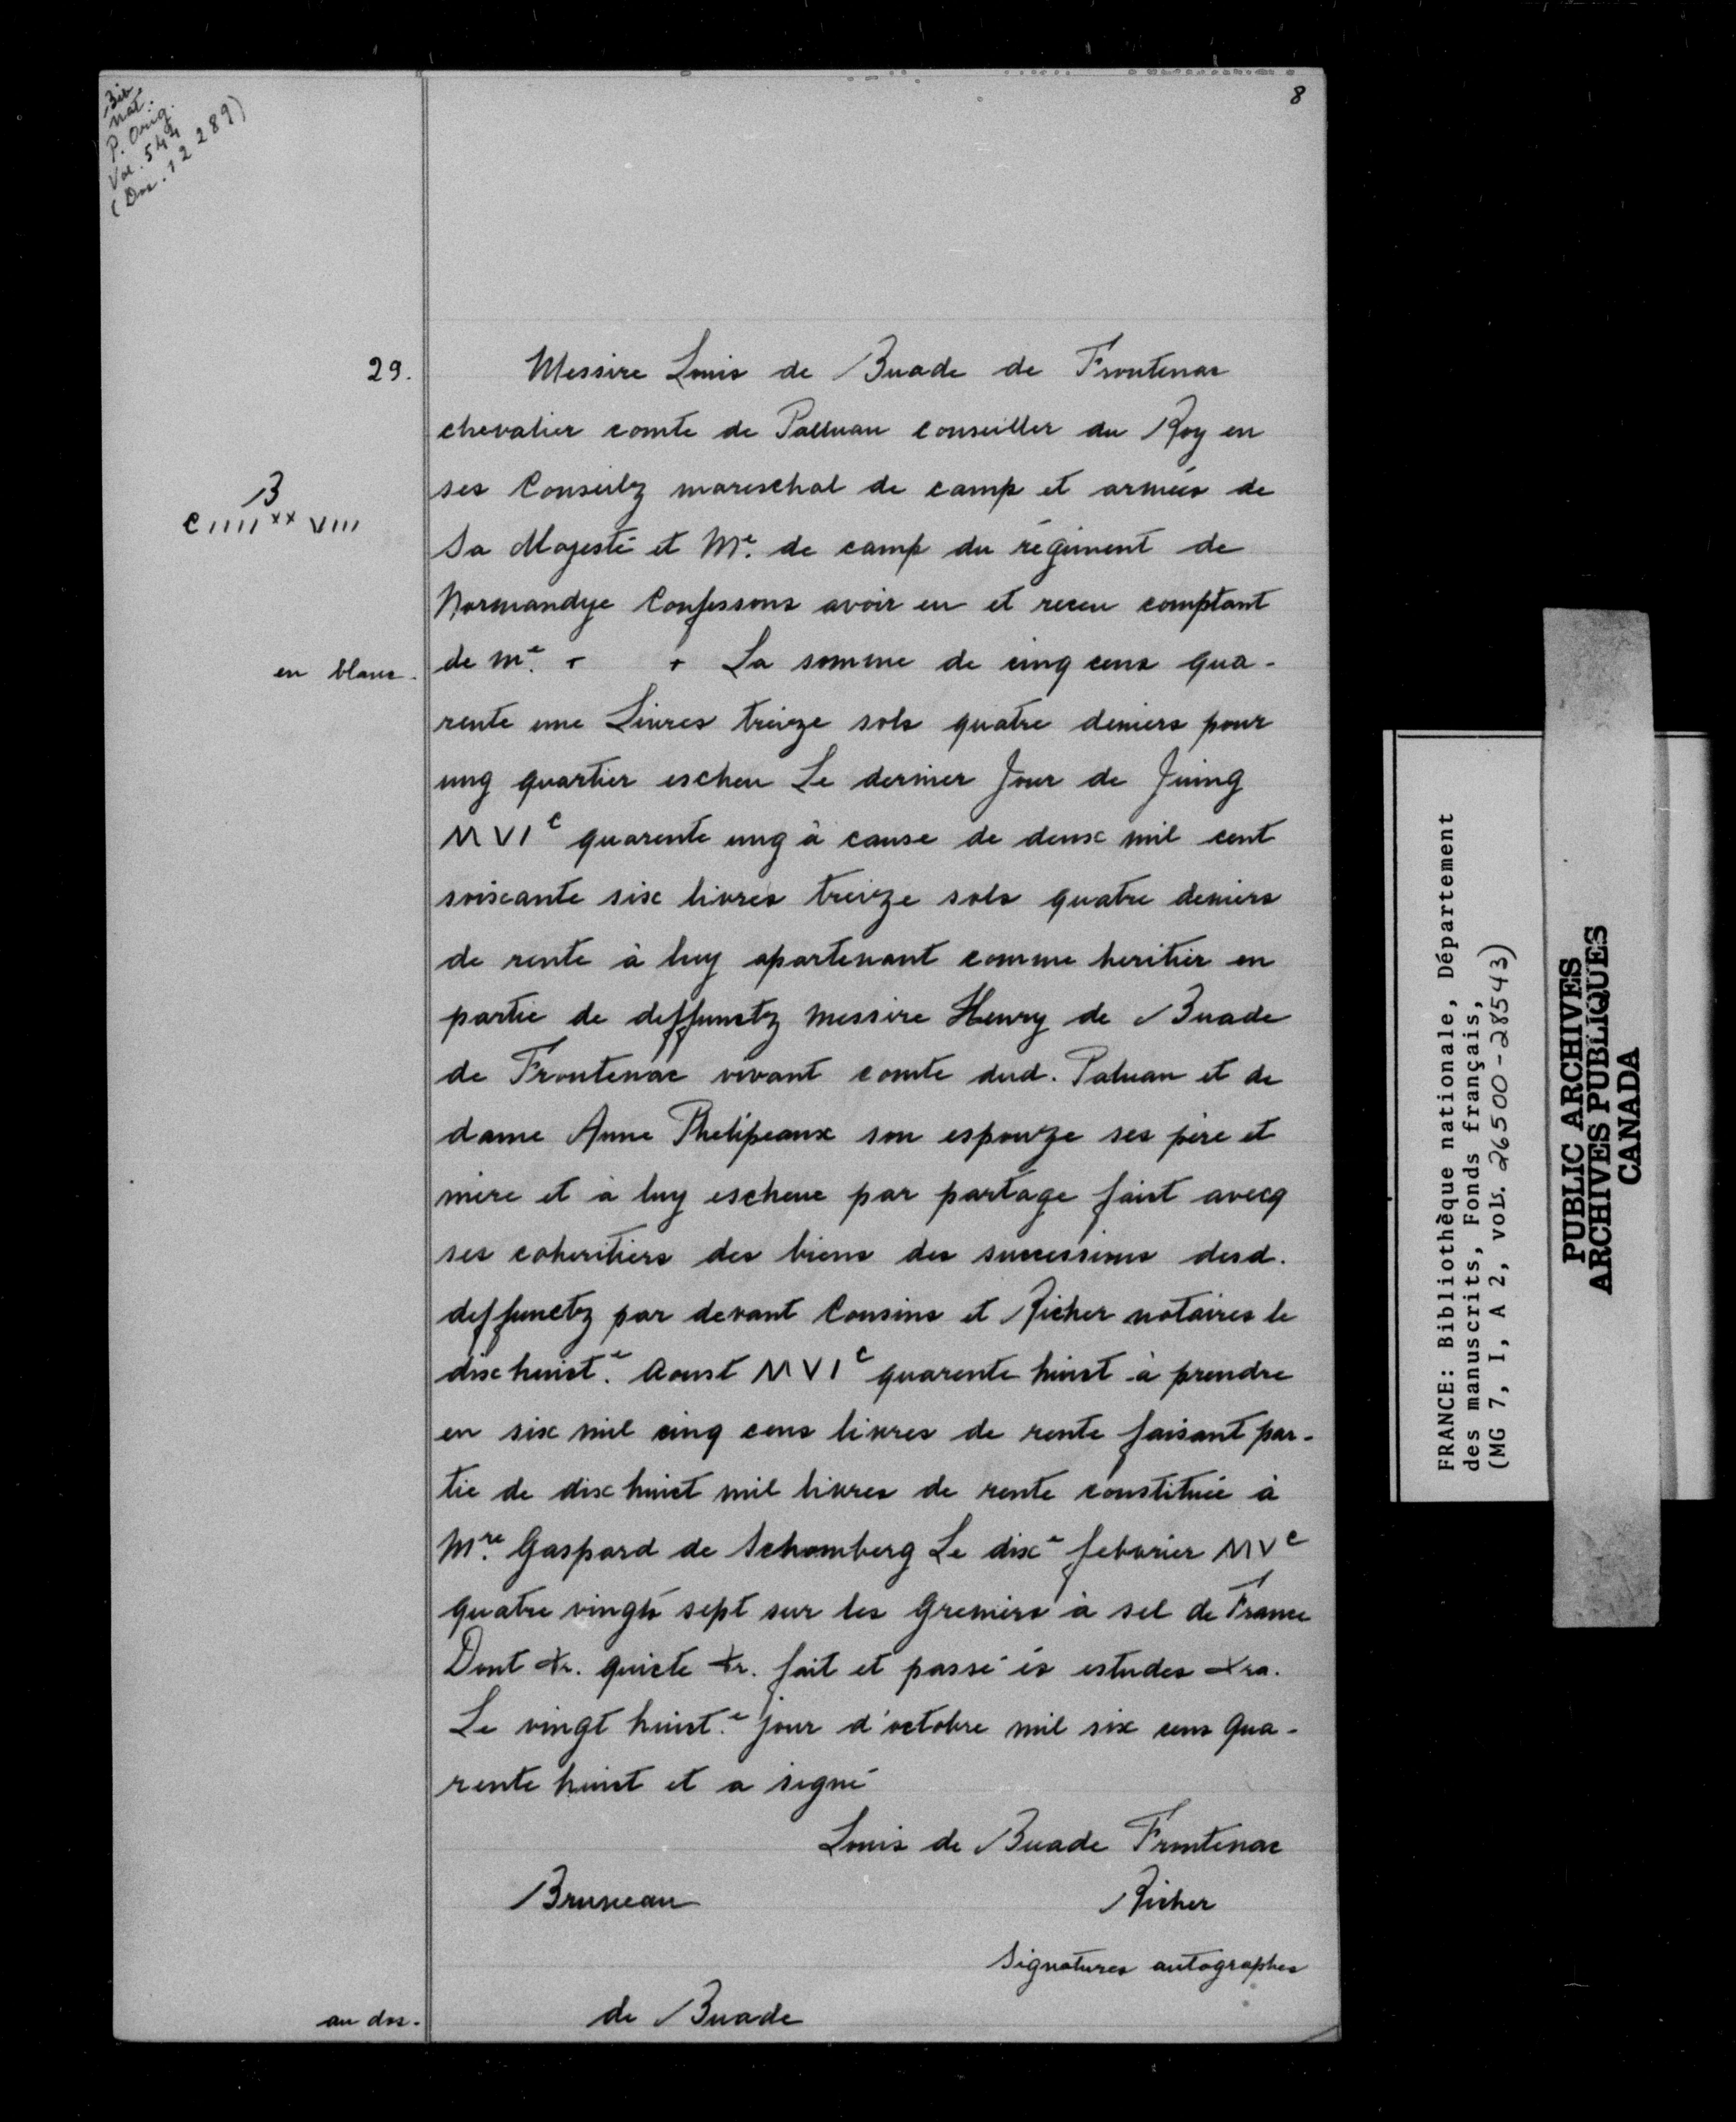 8
Bib.
nat.
P. Orig.
Vol. 544
(Dos. 12289)
29.
Messire Louis de Buade de Frontenac
chevalier comte de Palluau conseiller du Roy en
ses Conseilz mareschal de camp et armées de
B
CIIIIxx VIII
Sa Majesté et Me. de camp du régiment de
Normandye Confessons avoir eu et receu comptant
en blanc.
de me. + + La somme de cinq cens qua-
rente une Livres treize sols quatre deniers pour
ung quartier escheu Le dernier Jour de Juing
MVIc quarente ung à cause de deux mil cent
soixante six livres treize sols quatre deniers
de rente à luy apartenant comme heritier en
partie de deffunctz messire Henry de Buade
de Frontenac vivant comte dud. Paluau et de
dame Anne Phelipeaux son espouze ses père et
mère et à luy escheue par partage faict avecq
ses coheritiers des biens des successions desd.
deffunctz par devant Cousins et Richer notaires le
dix huict.e Aoust MVIc quarente huict à prendre
en six mil cinq cens livres de rente faisant par-
tie de dix huict mil livres de rente constituée à
Mre. Gaspard de Schomberg Le dixe febvrier MVc
quatre vingts sept sur les Greniers à sel de France
Dont &r. quicte &r. fait et passé ès estudes &ra.
Le vingt huict.e jour d'octobre mil six cens qua-
rente huict et a signé
Louis de Buade Frontenac
Bruneau Richer
Signatures autographes
au dos. de Buade
FRANCE: Bibliothèque nationale, Département
des manuscrits, Fonds français,
(MG 7, I, A 2, vols. 26500-28543)
PUBLIC ARCHIVES
ARCHIVES PUBLIQUES
CANADA